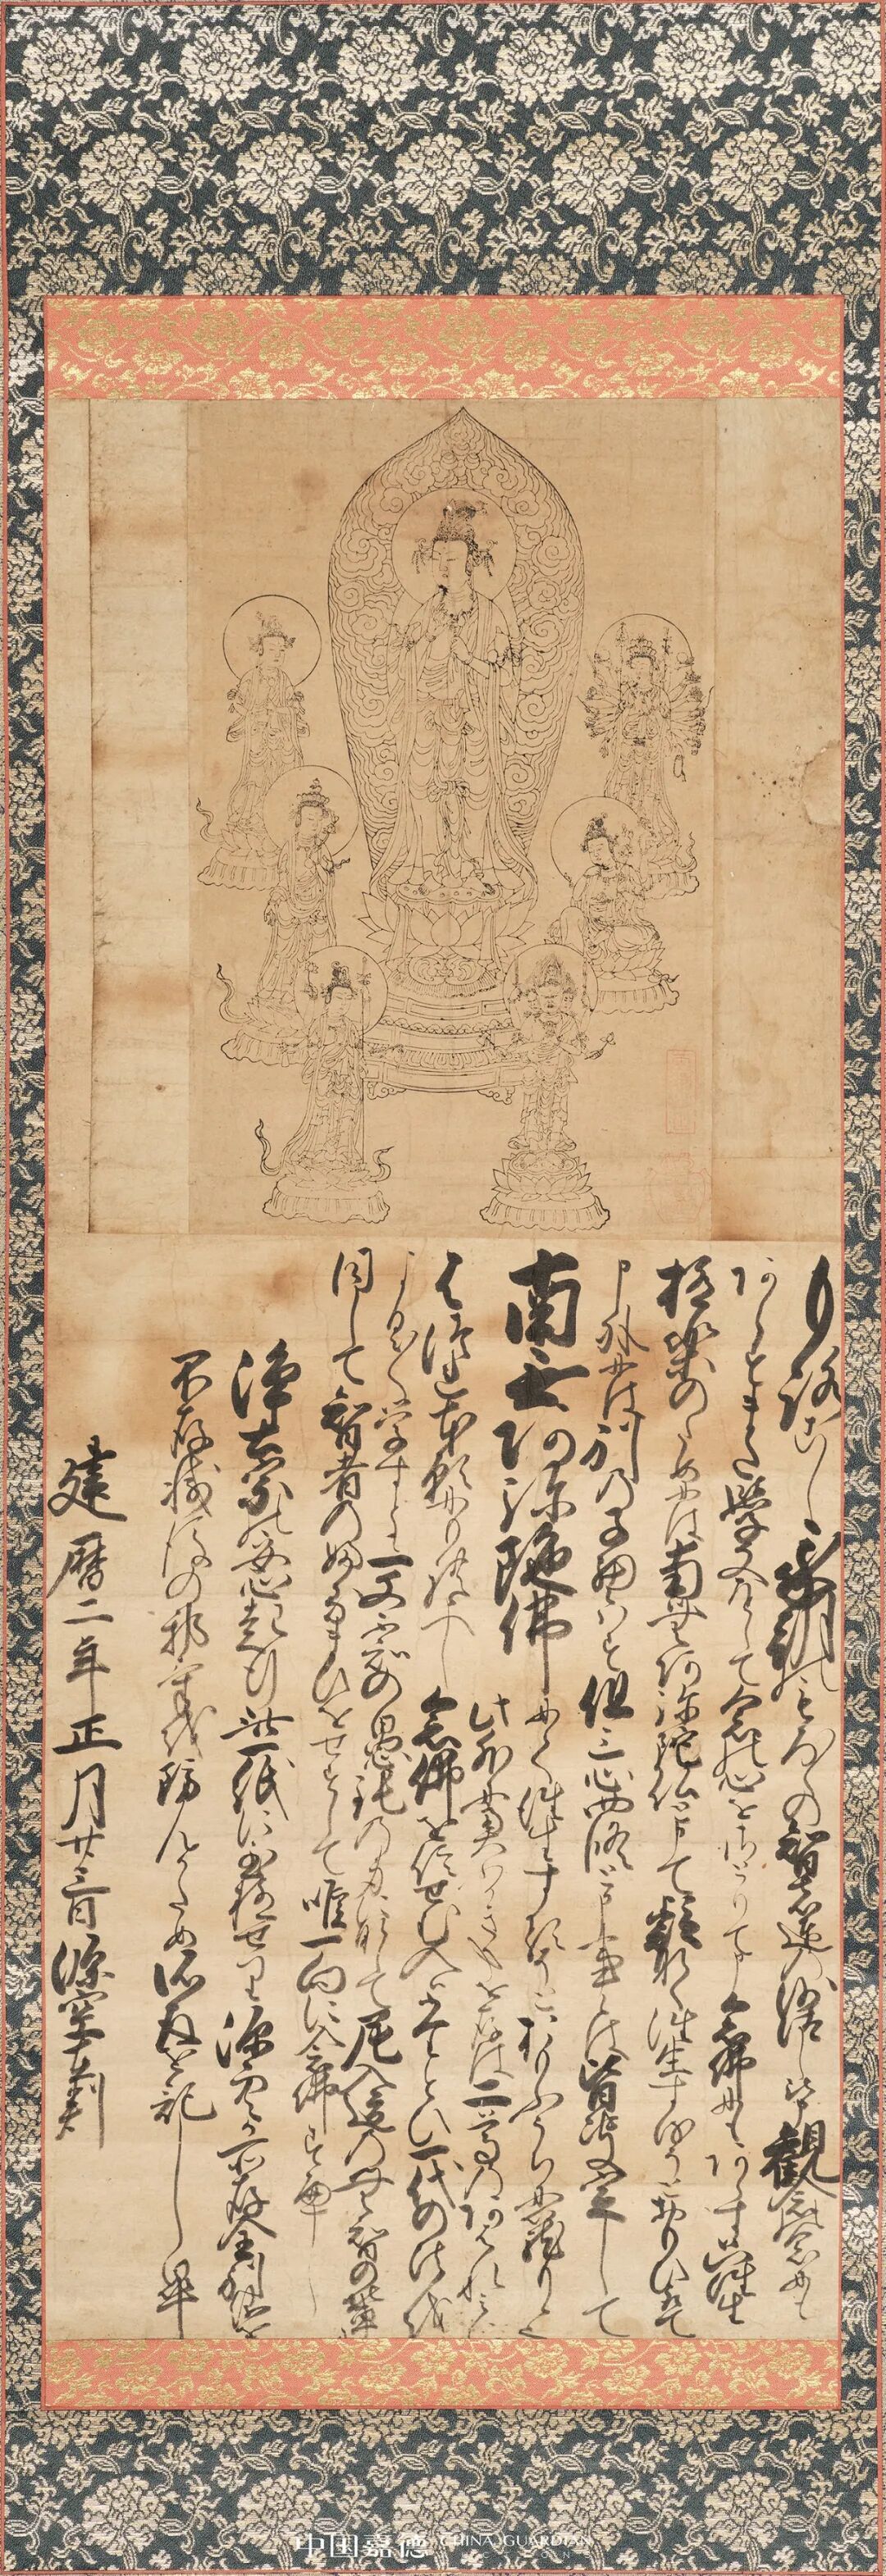 もろこし我朝にもろ〳〵の智者達の沙汰し申さるゝ観念の念にも
あらすまた学文をして念の心をさとりて申念佛にもあらす只往生
極楽のためには南無阿弥陀仏と申て疑なく往生するそとおもひとりて
申外には別の子細候はす但三心四修と申事の候は皆決定して
南無阿弥陀佛にて往生するそとおもふうちに籠り候
此外に奥ふかき事を存せは二尊のあはれみに
はつれ本願にもれ候へし念佛を信せむ人はたとひ一代の法を
よく〳〵学すとも一文不知の愚鈍の身になして尼入道の無智の輩に
同して智者の振舞をせすして唯一向に念佛すへし
浄土宗の安心起行此一紙に至極せり源空か所存全別義を
不存滅後の邪義を防んかため所存を記し畢
建暦二年正月廿三日 源空在判
中国嘉德 CHINA GUARDIAN